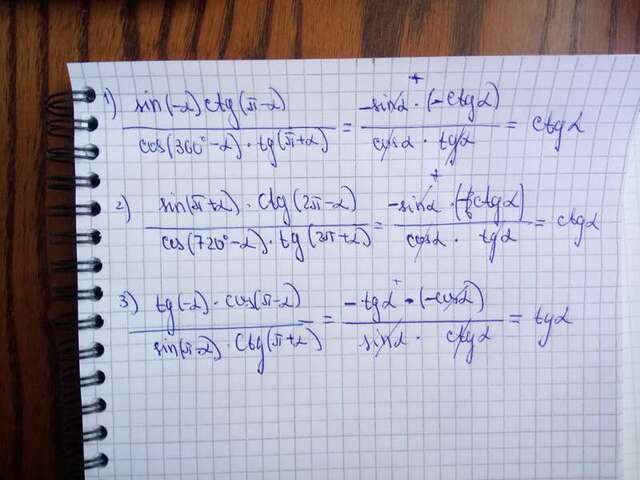 1) sin(-α) ctg(π-α) / cos(360°-α) · tg(π+α) = -sinα · (-ctgα) / cosα · tgα = ctgα
2) sin(π+α) · ctg(2π-α) / cos(720°-α) · tg(2π+α) = -sinα · (-ctgα) / cosα · tgα = ctgα
3) tg(-α) · cos(π-α) / sin(π-α) · ctg(π+α) = -tgα · (-cosα) / sinα · ctgα = tgα